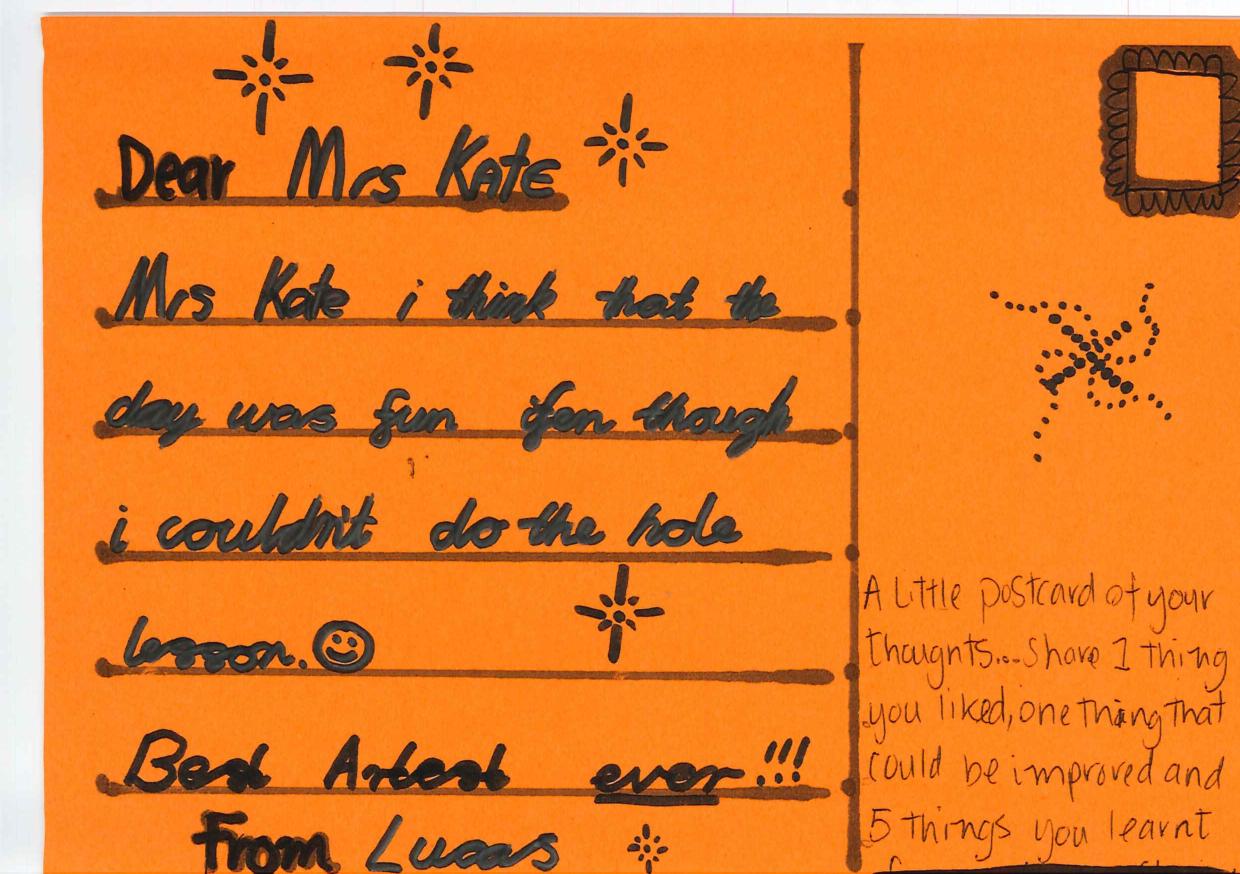 Dear Mrs KATE
Mrs Kate i think that the
day was fun ifen though
i couldn't do the hole
lesson.
Best Artest ever!!!
From Lucas
A Little postcard of your
thoughts...Share 1 thing
you liked, one thing that
could be improved and
5 things you learnt